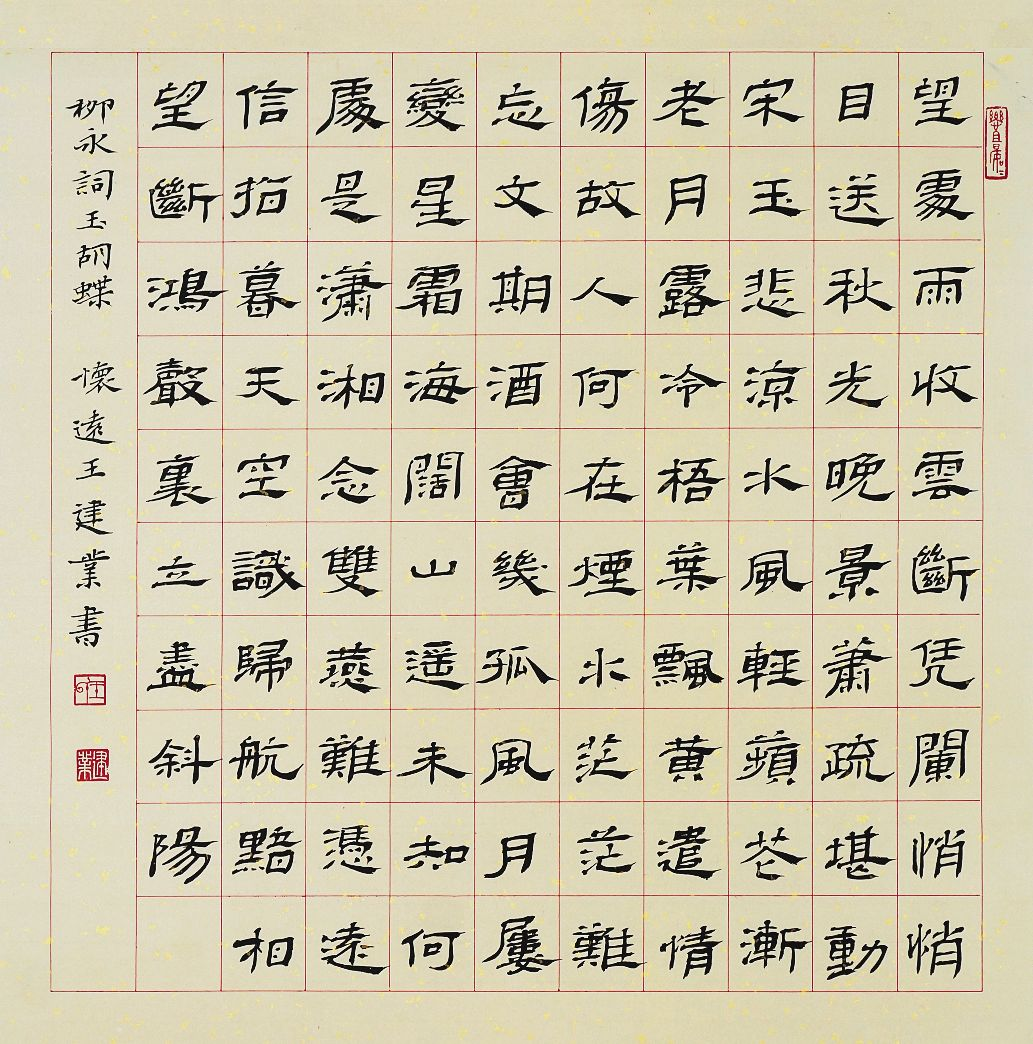 望處雨收雲斷凭闌悄悄
目送秋光晚景蕭疏堪動
宋玉悲涼水風輕蘋芲漸
老月露冷梧葉飄黃遣情
傷故人何在煙水茫茫難
忘文期酒會幾孤風月屢
變星霜海闊山遥未知何
處是瀟湘念雙燕難憑遠
信指暮天空識歸航黯相
望斷鴻聲裏立盡斜陽
柳永詞玉胡蝶 懷遠王建業書